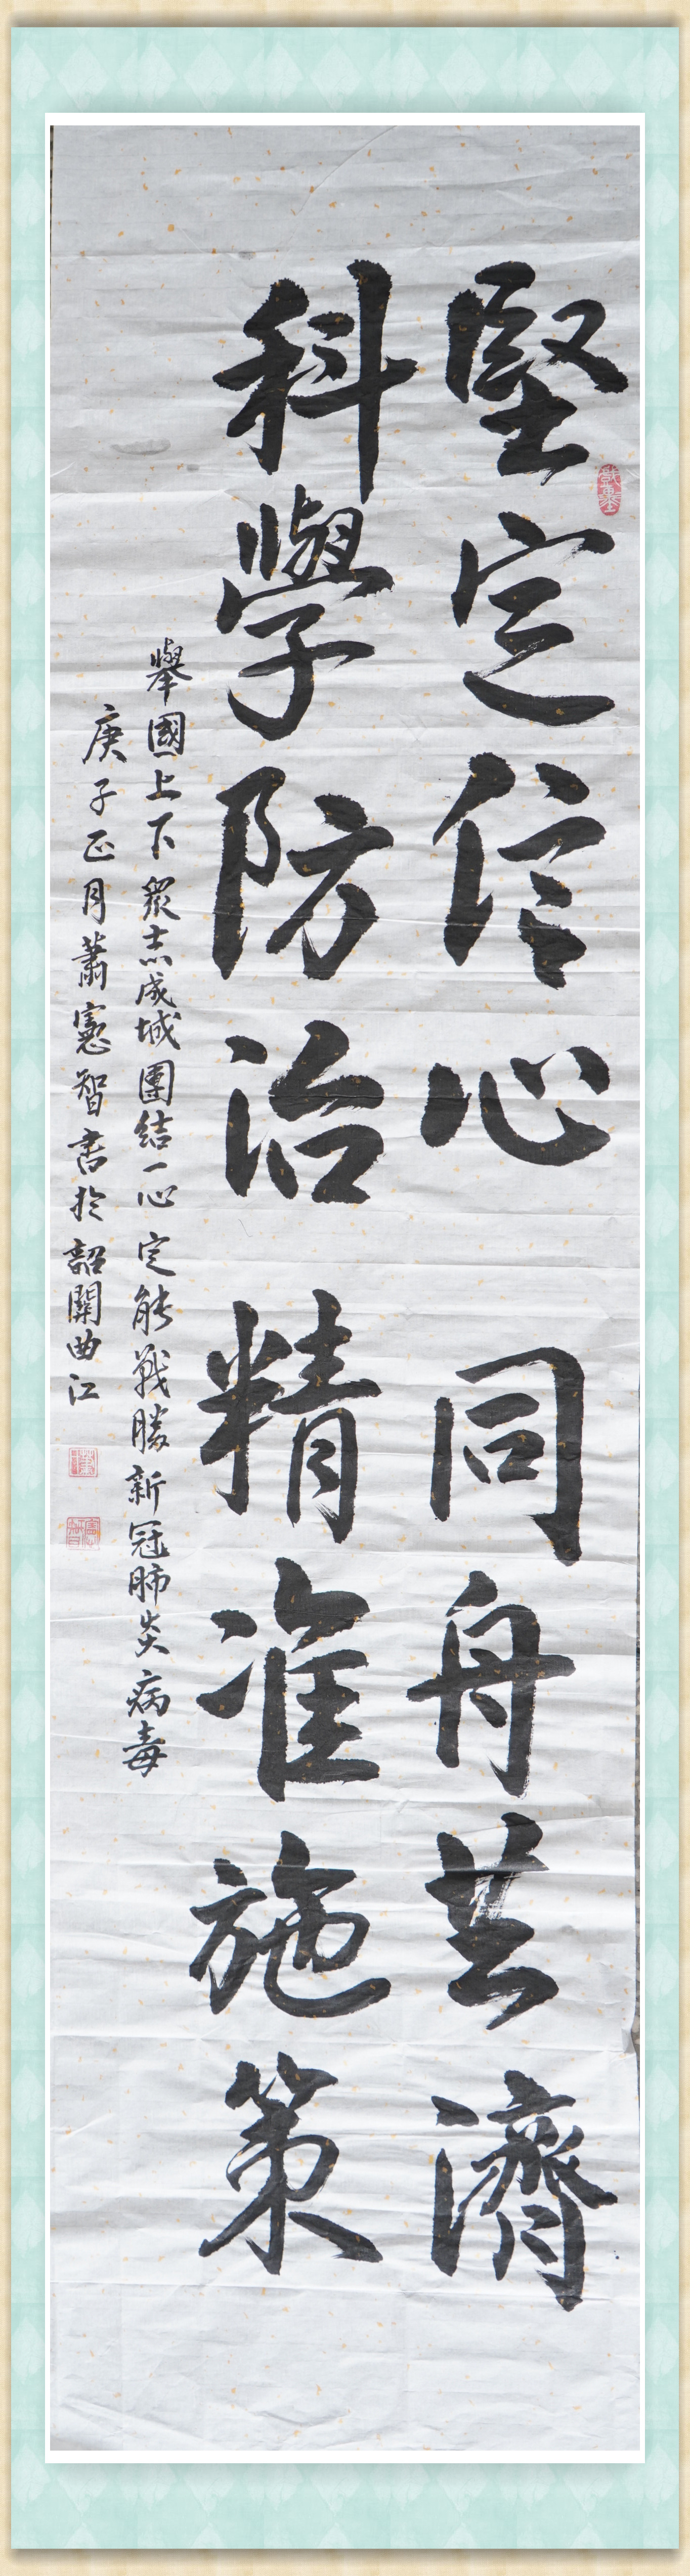 堅定信心 同舟共濟
科學防治 精准施策
舉國上下眾志成城團結一心定能戰勝新冠肺炎病毒
庚子正月蕭憲智書於韶關曲江
戲墨
蕭印
憲智